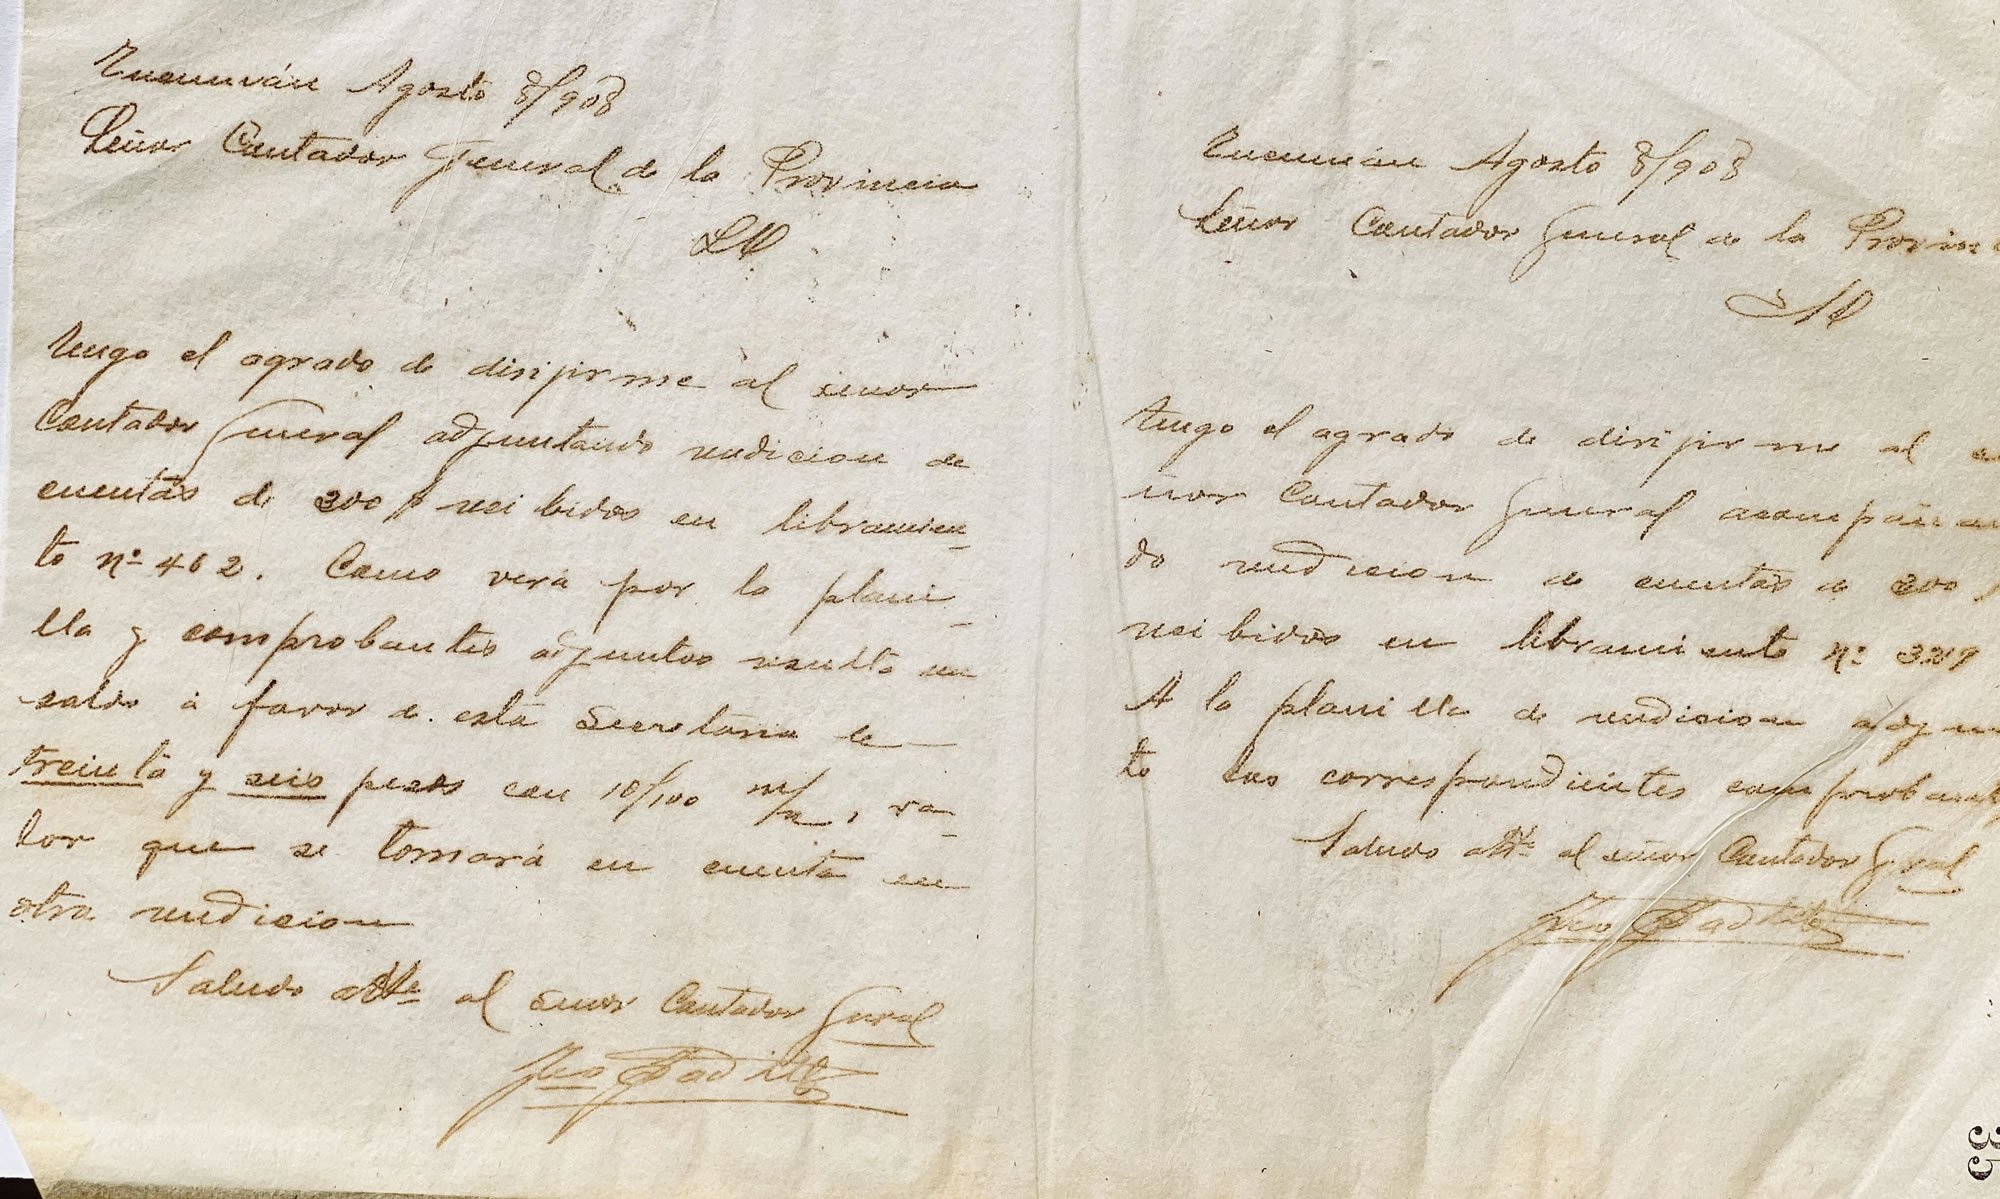 Tucumán Agosto 8/908
Señor Contador General de la Provincia
S/D
Tengo el agrado de dirijirme al señor
Contador General adjuntando rendicion de
cuentas de 200 $ recibidos en libramien_
to nº 462. Como verá por la plani_
lla y comprobantes adjuntos resulta un
saldo á favor de esta Secretaria de
treinta y seis pesos con 10/100 m/n, va_
lor que se tomará en cuenta en
otra rendicion
Saludo atte al señor Contador Gral
Tucumán Agosto 8/908
Señor Contador General de la Provinc
S/D
Tengo el agrado de dirijirme al se
ñor Contador General acompañan
do rendicion de cuentas de 200 $
recibidos en libramiento nº
A la planilla de rendicion adjun
to los correspondientes comprobantes
Saludo atte al señor Contador Gral